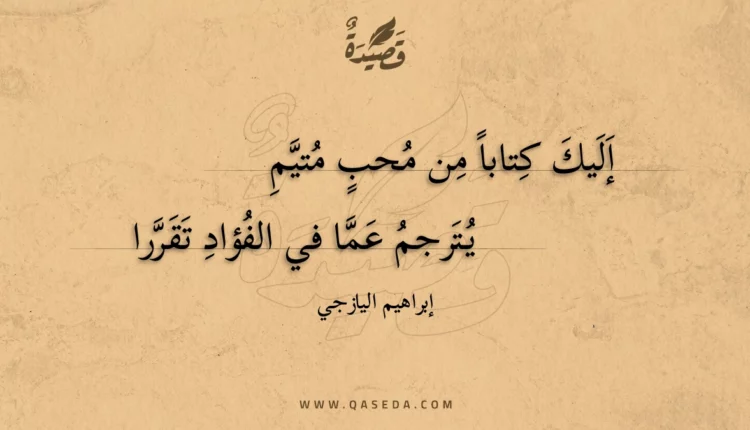 قَصِيْدَةٌ
إَلَيكَ كِتاباً مِن مُحبٍ مُتيَّمِ
يُتَرجمُ عَمَّا في الفُؤادِ تَقَرَّرا
إبراهيم اليازجي
WWW.QASEDA.COM